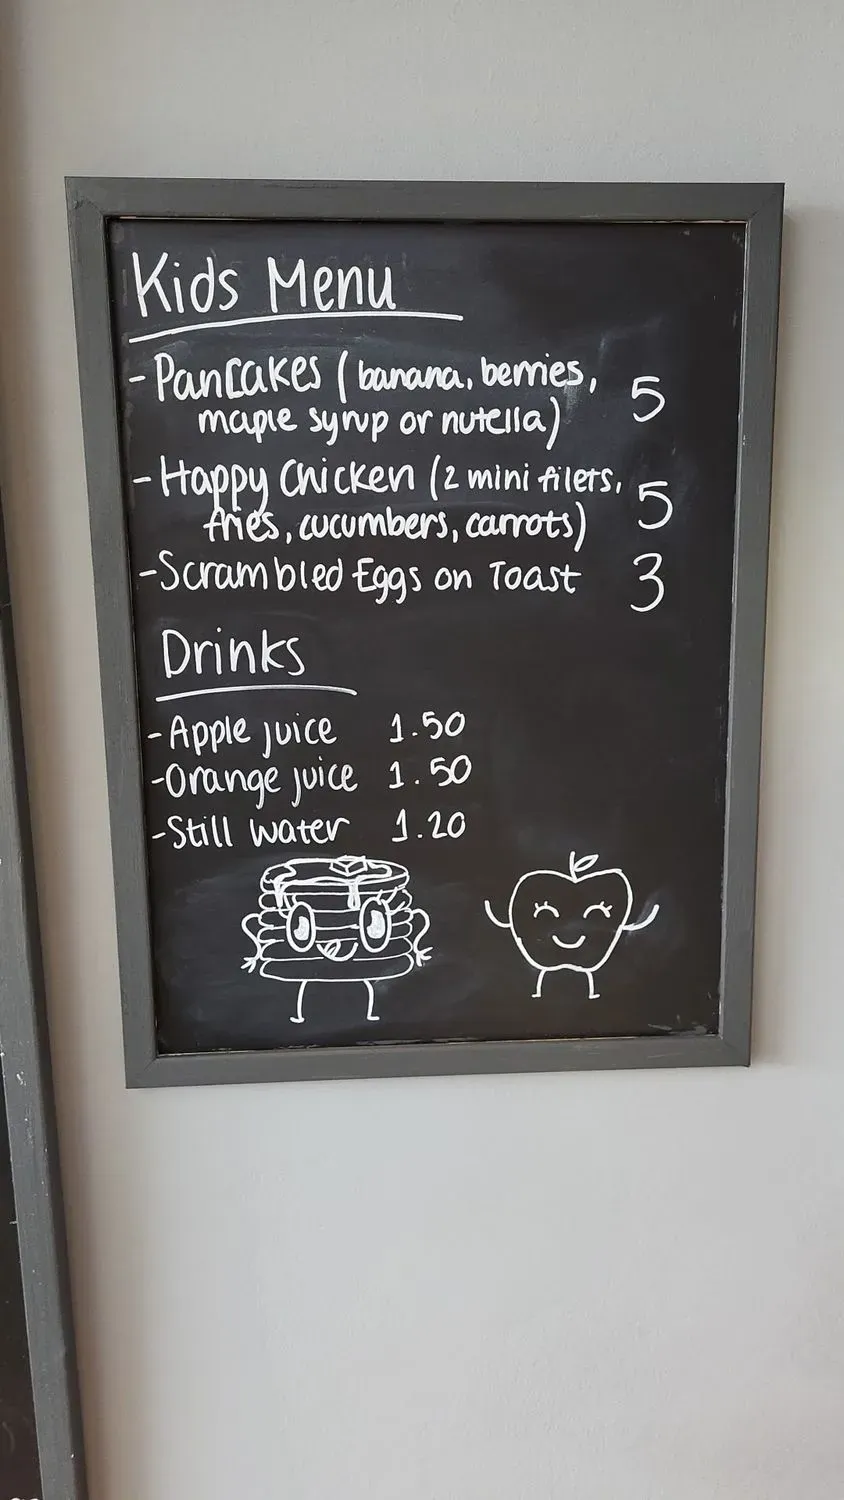 Kids Menu
- Pancakes (banana, berries, 5
maple syrup or nutella)
- Happy Chicken (2 mini filets, 5
fries, cucumbers, carrots)
- Scrambled Eggs on Toast 3
Drinks
- Apple juice 1.50
- Orange juice 1.50
- Still water 1.20